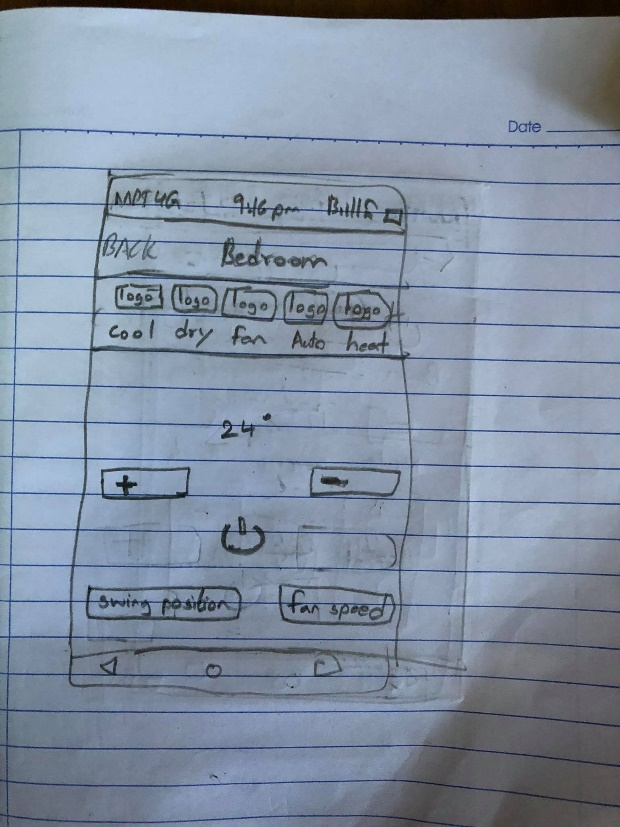 Date
MPT 4G 9:16 pm
BACK Bedroom
logo logo logo logo logo
cool dry fan Auto heat
24°
+ -
swing position fan speed